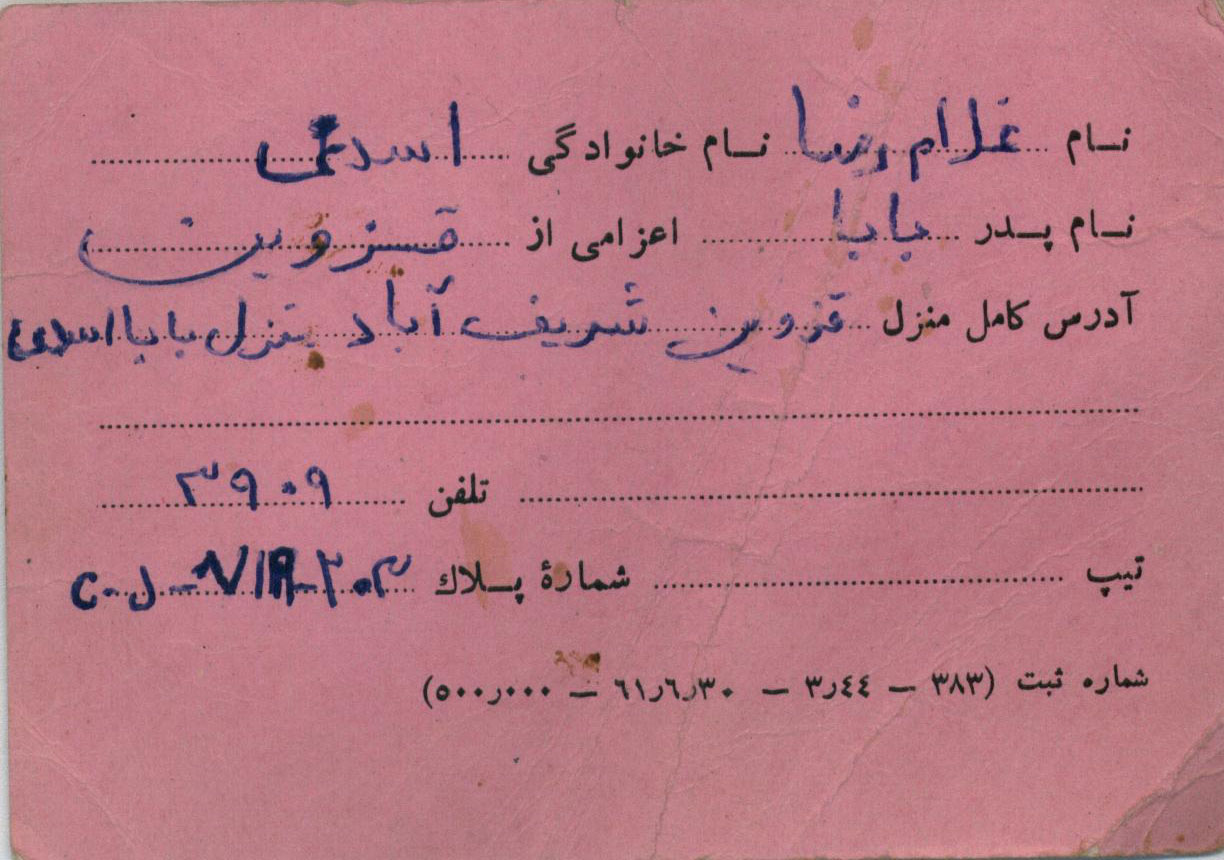 نام غلامرضا نام خانوادگی اسدی
نام پدر بابا اعزامی از قزوین
آدرس کامل منزل قزوین شریف آباد منزل بابا اسدی
تلفن ۳۹۰۹
تیپ شمارهٔ پلاک
شماره ثبت (۳۸۳ – ۳٫٤٤ – ۶۱٫۶٫۳۰ – ۵۰۰٫۰۰۰)